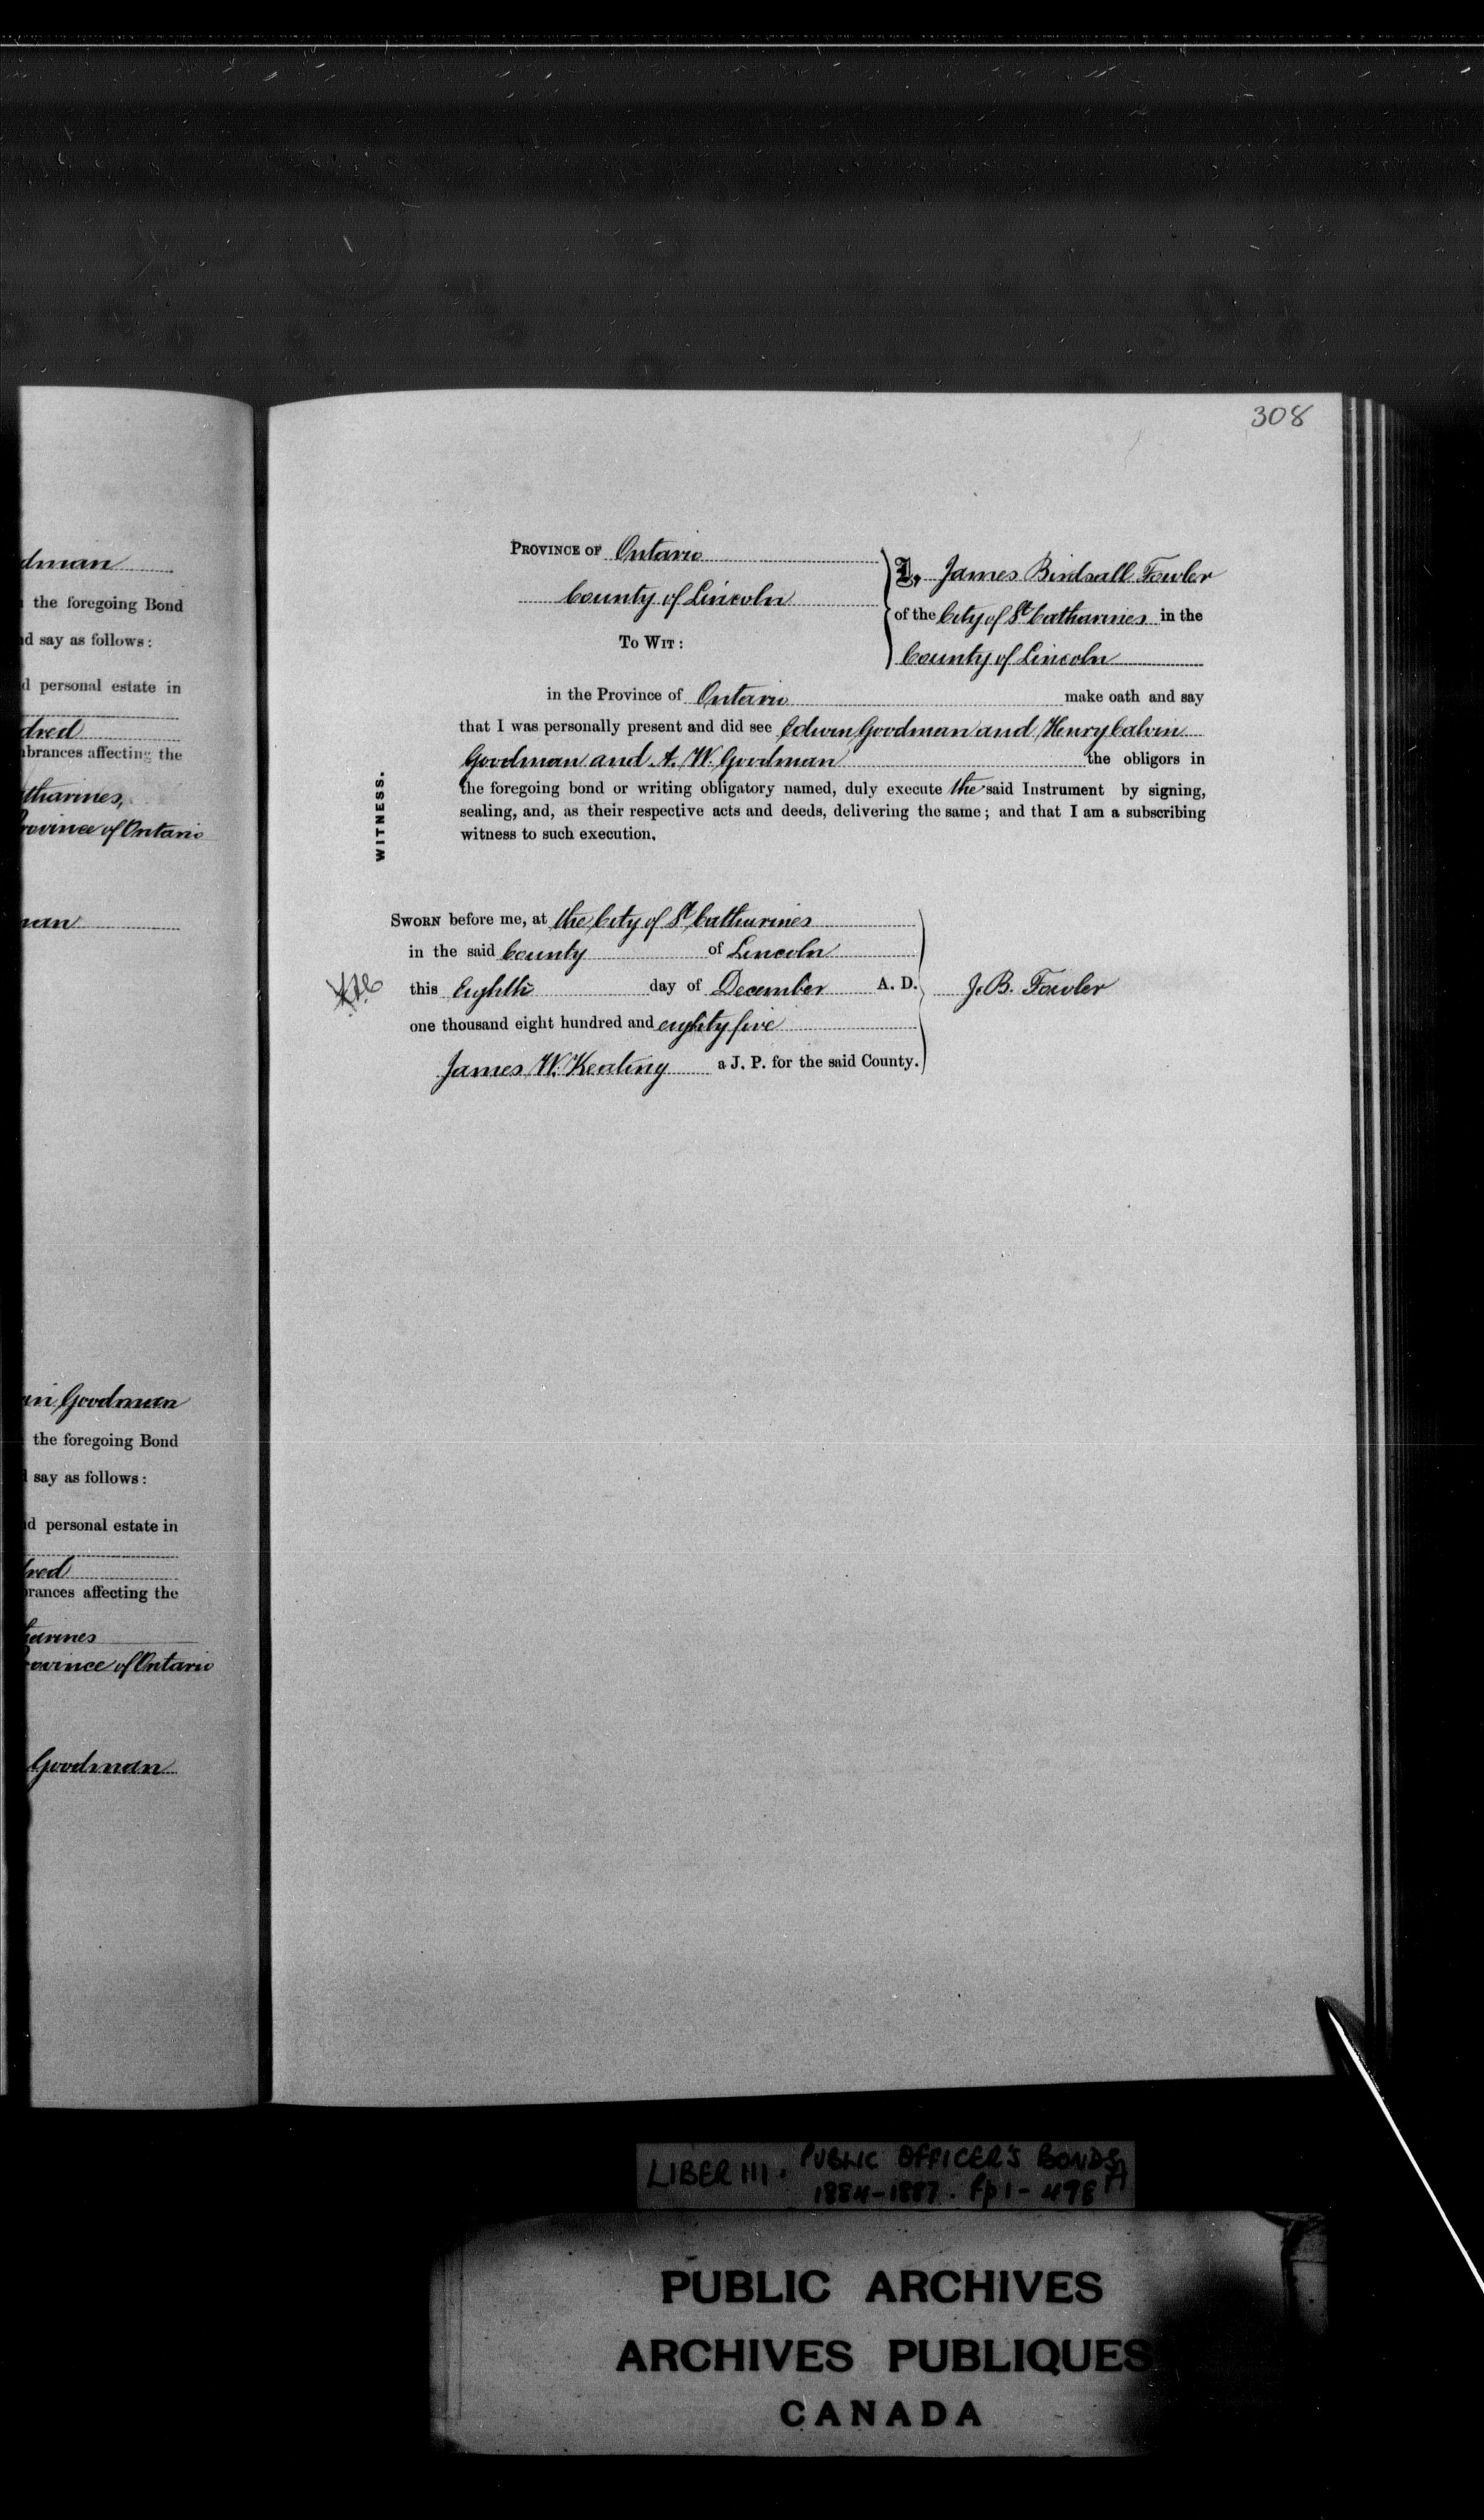 dman
the foregoing Bond
d say as follows:
d personal estate in
dred
brances affecting the
tharines,
rovince of Ontario
man
in Goodman
the foregoing Bond
say as follows:
d personal estate in
red
rances affecting the
arines
rovince of Ontario
Goodman
308
PROVINCE OF Ontario
County of Lincoln
TO WIT:
I, James Birdsall Fowler
of the City of St Catharines in the
County of Lincoln
in the Province of Ontario make oath and say
that I was personally present and did see Edwin Goodman and Henry Calvin
Goodman and A. W. Goodman the obligors in
the foregoing bond or writing obligatory named, duly execute the said Instrument by signing,
sealing, and, as their respective acts and deeds, delivering the same; and that I am a subscribing
witness to such execution.
WITNESS.
SWORN before me, at the City of St Catharines
in the said County of Lincoln
this Eighth day of December A. D.
one thousand eight hundred and eighty five
James W. Keating a J. P. for the said County.
J. B. Fowler
LIBER III. PUBLIC OFFICER'S BONDS
1884-1887. pp 1 - 498A
PUBLIC ARCHIVES
ARCHIVES PUBLIQUES
CANADA